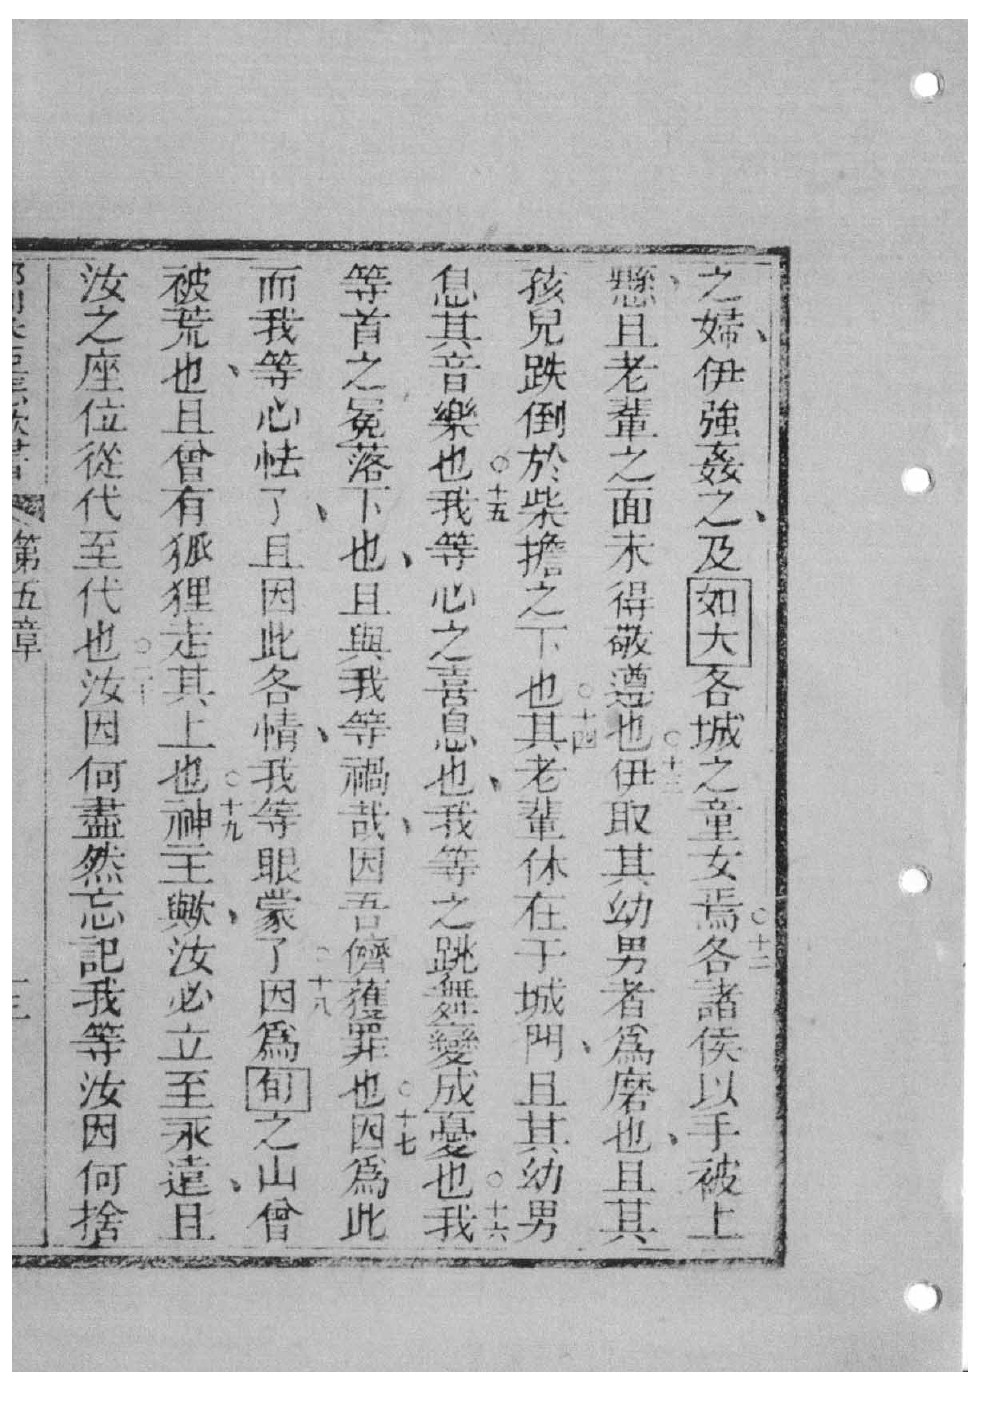 之婦、伊強姦之、及如大各城之童女焉○十二各諸侯以手被上
懸、且老輩之面未得敬遵也○十三伊取其幼男者爲磨也、且其
孩兒跌倒於柴擔之下也○十四其老輩休在于城門、且其幼男
息其音樂也○十五我等心之喜息也、我等之跳舞變成憂也○十六我
等首之冕落下也、且與我等禍哉、因吾儕獲罪也○十七因爲此
而我等心怯了、且因此各情、我等眼蒙了○十八因爲旬之山曾
被荒也、且曾有狐狸走其上也○十九神主歟、汝必立至永遠、且
汝之座位從代至代也○二十汝因何盡然忘記我等汝因何捨
第五章 三